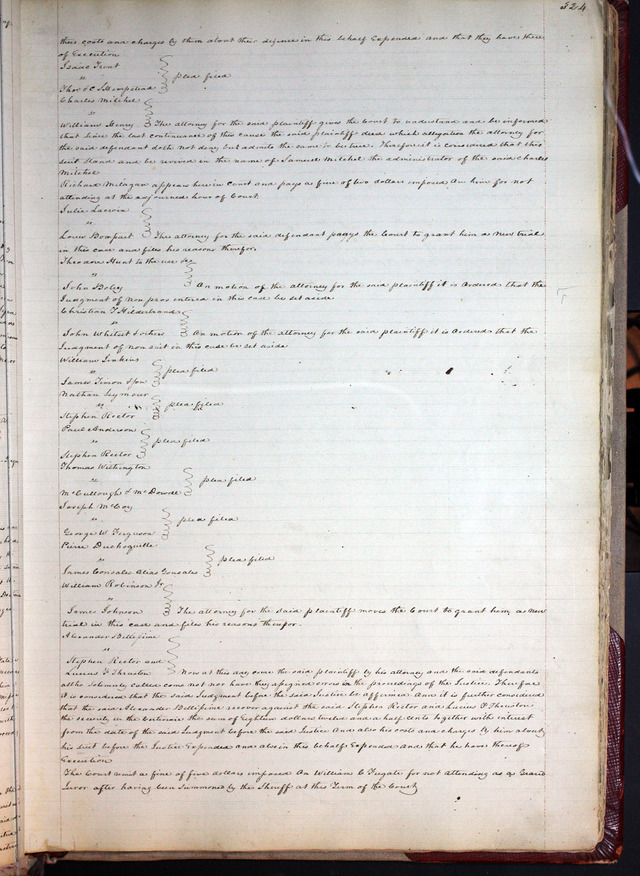 324
their costs and charges by them about their defence in this behalf Expended and that they have there
of Execution
Isaac Trent
"
plea filed
Thos & C S Hempstead
Charles Mitchel
"
William Henry The attorney for the said plaintiff gives the Court to understand and be informed
that since the last continuance of this cause the said plaintiff died which allegation the attorney for
the said defendant doth not deny but admits the same to be true. Therefore it is considered that this
suit stand and be revived in the name of Samuel Mitchel the administrator of the said Charles
Mitchel
Richard Milagan appears here in Court and pays a fine of two dollars imposed On him for not
attending at the adjourned hour of Court.
Julie Lacroix
"
Louis Bompart The attorney for the said defendant prays the Court to grant him a New trial
in this case and files his reasons therefor.
Theodore Hunt to the use &c
"
John Boley On motion of the attorney for the said plaintiff it is Ordered that the
Judgment of Non pros entered in this case be set aside
Christian T Hilderbrand
"
John Whitset & others On motion of the attorney for the said plaintiff it is Ordered that the
Judgment of non suit in this cause be set aside
William Jenkins
"
plea filed
James Timon & Jon
Nathan Seymour
"
plea filed
Stephen Rector
Paul Anderson
"
plea filed
Stephen Rector
Thomas Withington
"
plea filed
McCullough & McDowell
Joseph McCoy
"
plea filed
George W Ferguson
Pierre Duchoquette
"
plea filed
James Consales Alias Gonsales
William Robinson Jr
"
James Johnson The attorney for the said plaintiff moves the Court to grant him, a New
trial in this case and files his reasons therefor.
Alexander Bellissime
"
Stephen Rector and
Lucius F Thruston Now at this day come the said plaintiff by his attorney and the said defendants
altho solemnly called come not nor have they assigned errors in the proceedings of the Justice. Therefore
it is considered that the said Judgment before the said Justice be affirmed. And it is further considered
that the said Alexander Bellissime recover against the said Stephen Rector and Lucius F Thruston
the security in the Certiorari the sum of Eighteen dollars twelve and a half Cents together with interest
from the date of the said Judgment before the said Justice And also his costs and charges by him about
his suit before the Justice Expended and also in this behalf Expended And that he have thereof
Execution
The Court remit a fine of five dollars imposed On William C Fugate for not attending as a Grand
Juror after having been summoned by the Sheriff at this Term of the Court